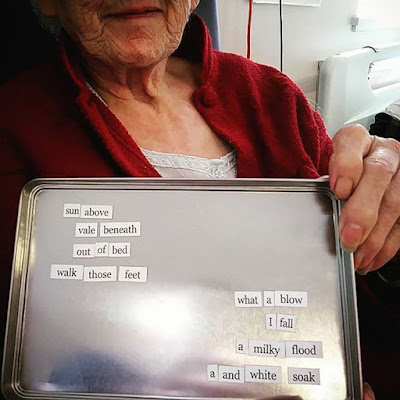 sun above
vale beneath
out of bed
walk those feet
what a blow
I fall
a milky flood
a and white soak